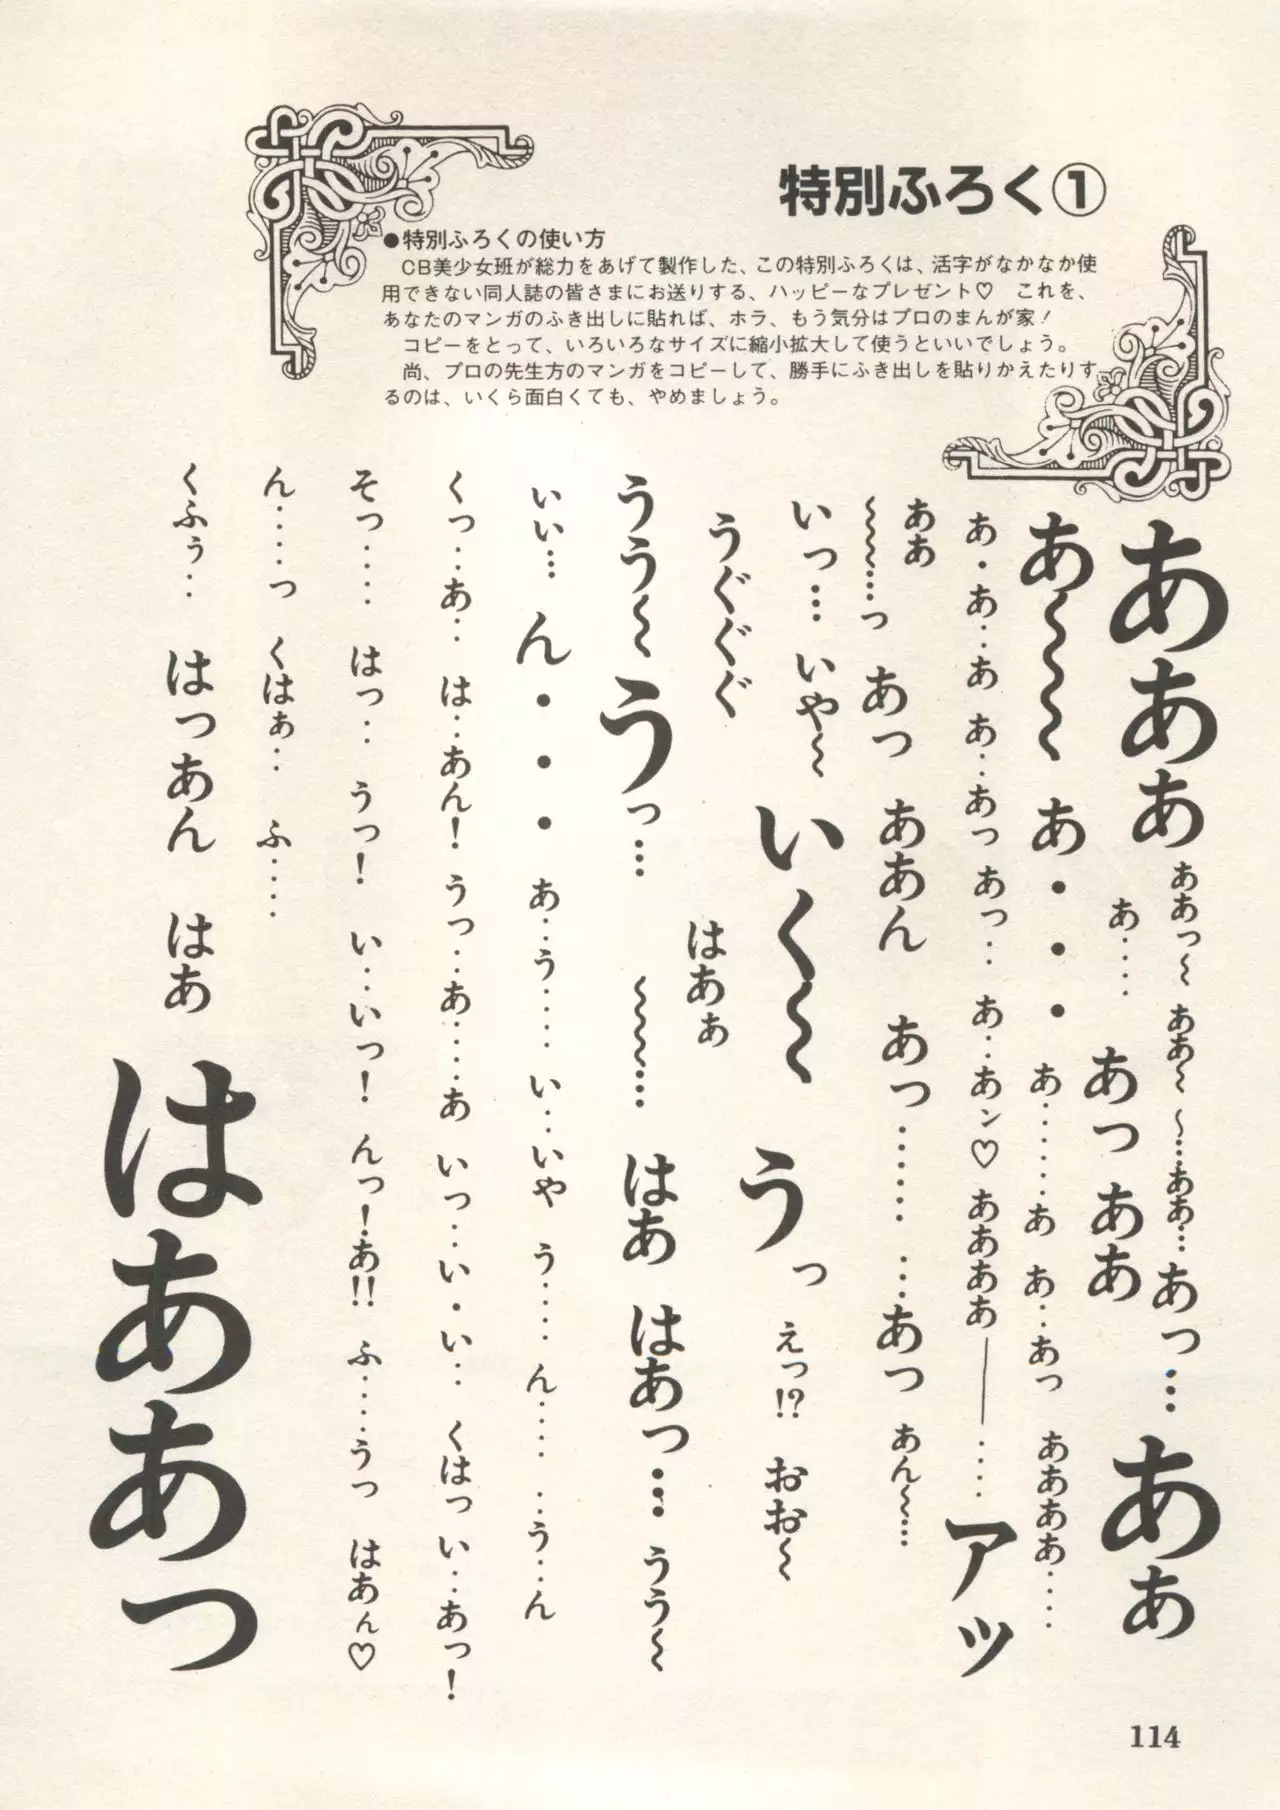 特別ふろく①
●特別ふろくの使い方
CB美少女班が総力をあげて製作した、この特別ふろくは、活字がなかなか使
用できない同人誌の皆さまにお送りする、ハッピーなプレゼント♡　これを、
あなたのマンガのふき出しに貼れば、ホラ、もう気分はプロのまんが家！
コピーをとって、いろいろなサイズに縮小拡大して使うといいでしょう。
尚、プロの先生方のマンガをコピーして、勝手にふき出しを貼りかえたりす
るのは、いくら面白くても、やめましょう。
あああ ああっ〜 ああ〜 〜…ああ… あっ… あぁ
あ‥‥ あっ ああ
あ〜〜〜 あ・・・ あ‥‥‥あ あ‥あっ ああああ‥‥
あ・あ‥あ あ‥あっ あっ‥ あ‥あン♡ ああああ――‥‥ アッ
ああ
〜〜…っ あっ ああん あっ‥‥‥ …あっ あん〜…
いっ… いや〜 いく〜 うっ えっ!? おお〜
うぐぐぐ はあぁ
うう〜 うっ… 〜〜… はあ はあっ… うう〜
いい… ん・・・ あ‥う‥‥ い‥いや う‥‥ ん‥‥ ‥う‥ん
くっ‥あ‥ は‥あん！ うっ‥あ‥‥あ いっ‥い・い‥ くはっ い‥あっ！
そっ‥‥ はっ‥ うっ！ い‥いっ！ んっ！あ!! ふ‥‥うっ はあん♡
ん‥‥っ くはぁ‥ ふ‥‥
くふぅ‥ はっあん はあ はああっ
114